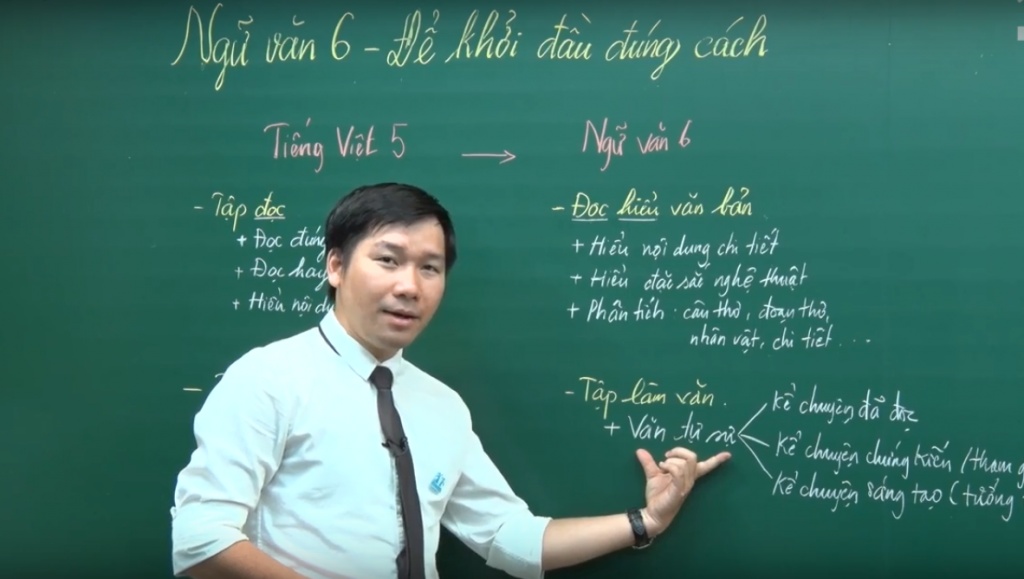 Ngữ văn 6 - Để khởi đầu đúng cách
Tiếng Việt 5 → Ngữ văn 6
- Tập đọc
+ Đọc đúng
+ Đọc hay
+ Hiểu nội
-
- Đọc hiểu văn bản
+ Hiểu nội dung chi tiết
+ Hiểu đặc sắc nghệ thuật
+ Phân tích: câu thơ, đoạn thơ,
nhân vật, chi tiết . . .
- Tập làm văn.
+ Văn tự sự
Kể chuyện đã đọc
Kể chuyện chứng kiến / tham
Kể chuyện sáng tạo (tưởng